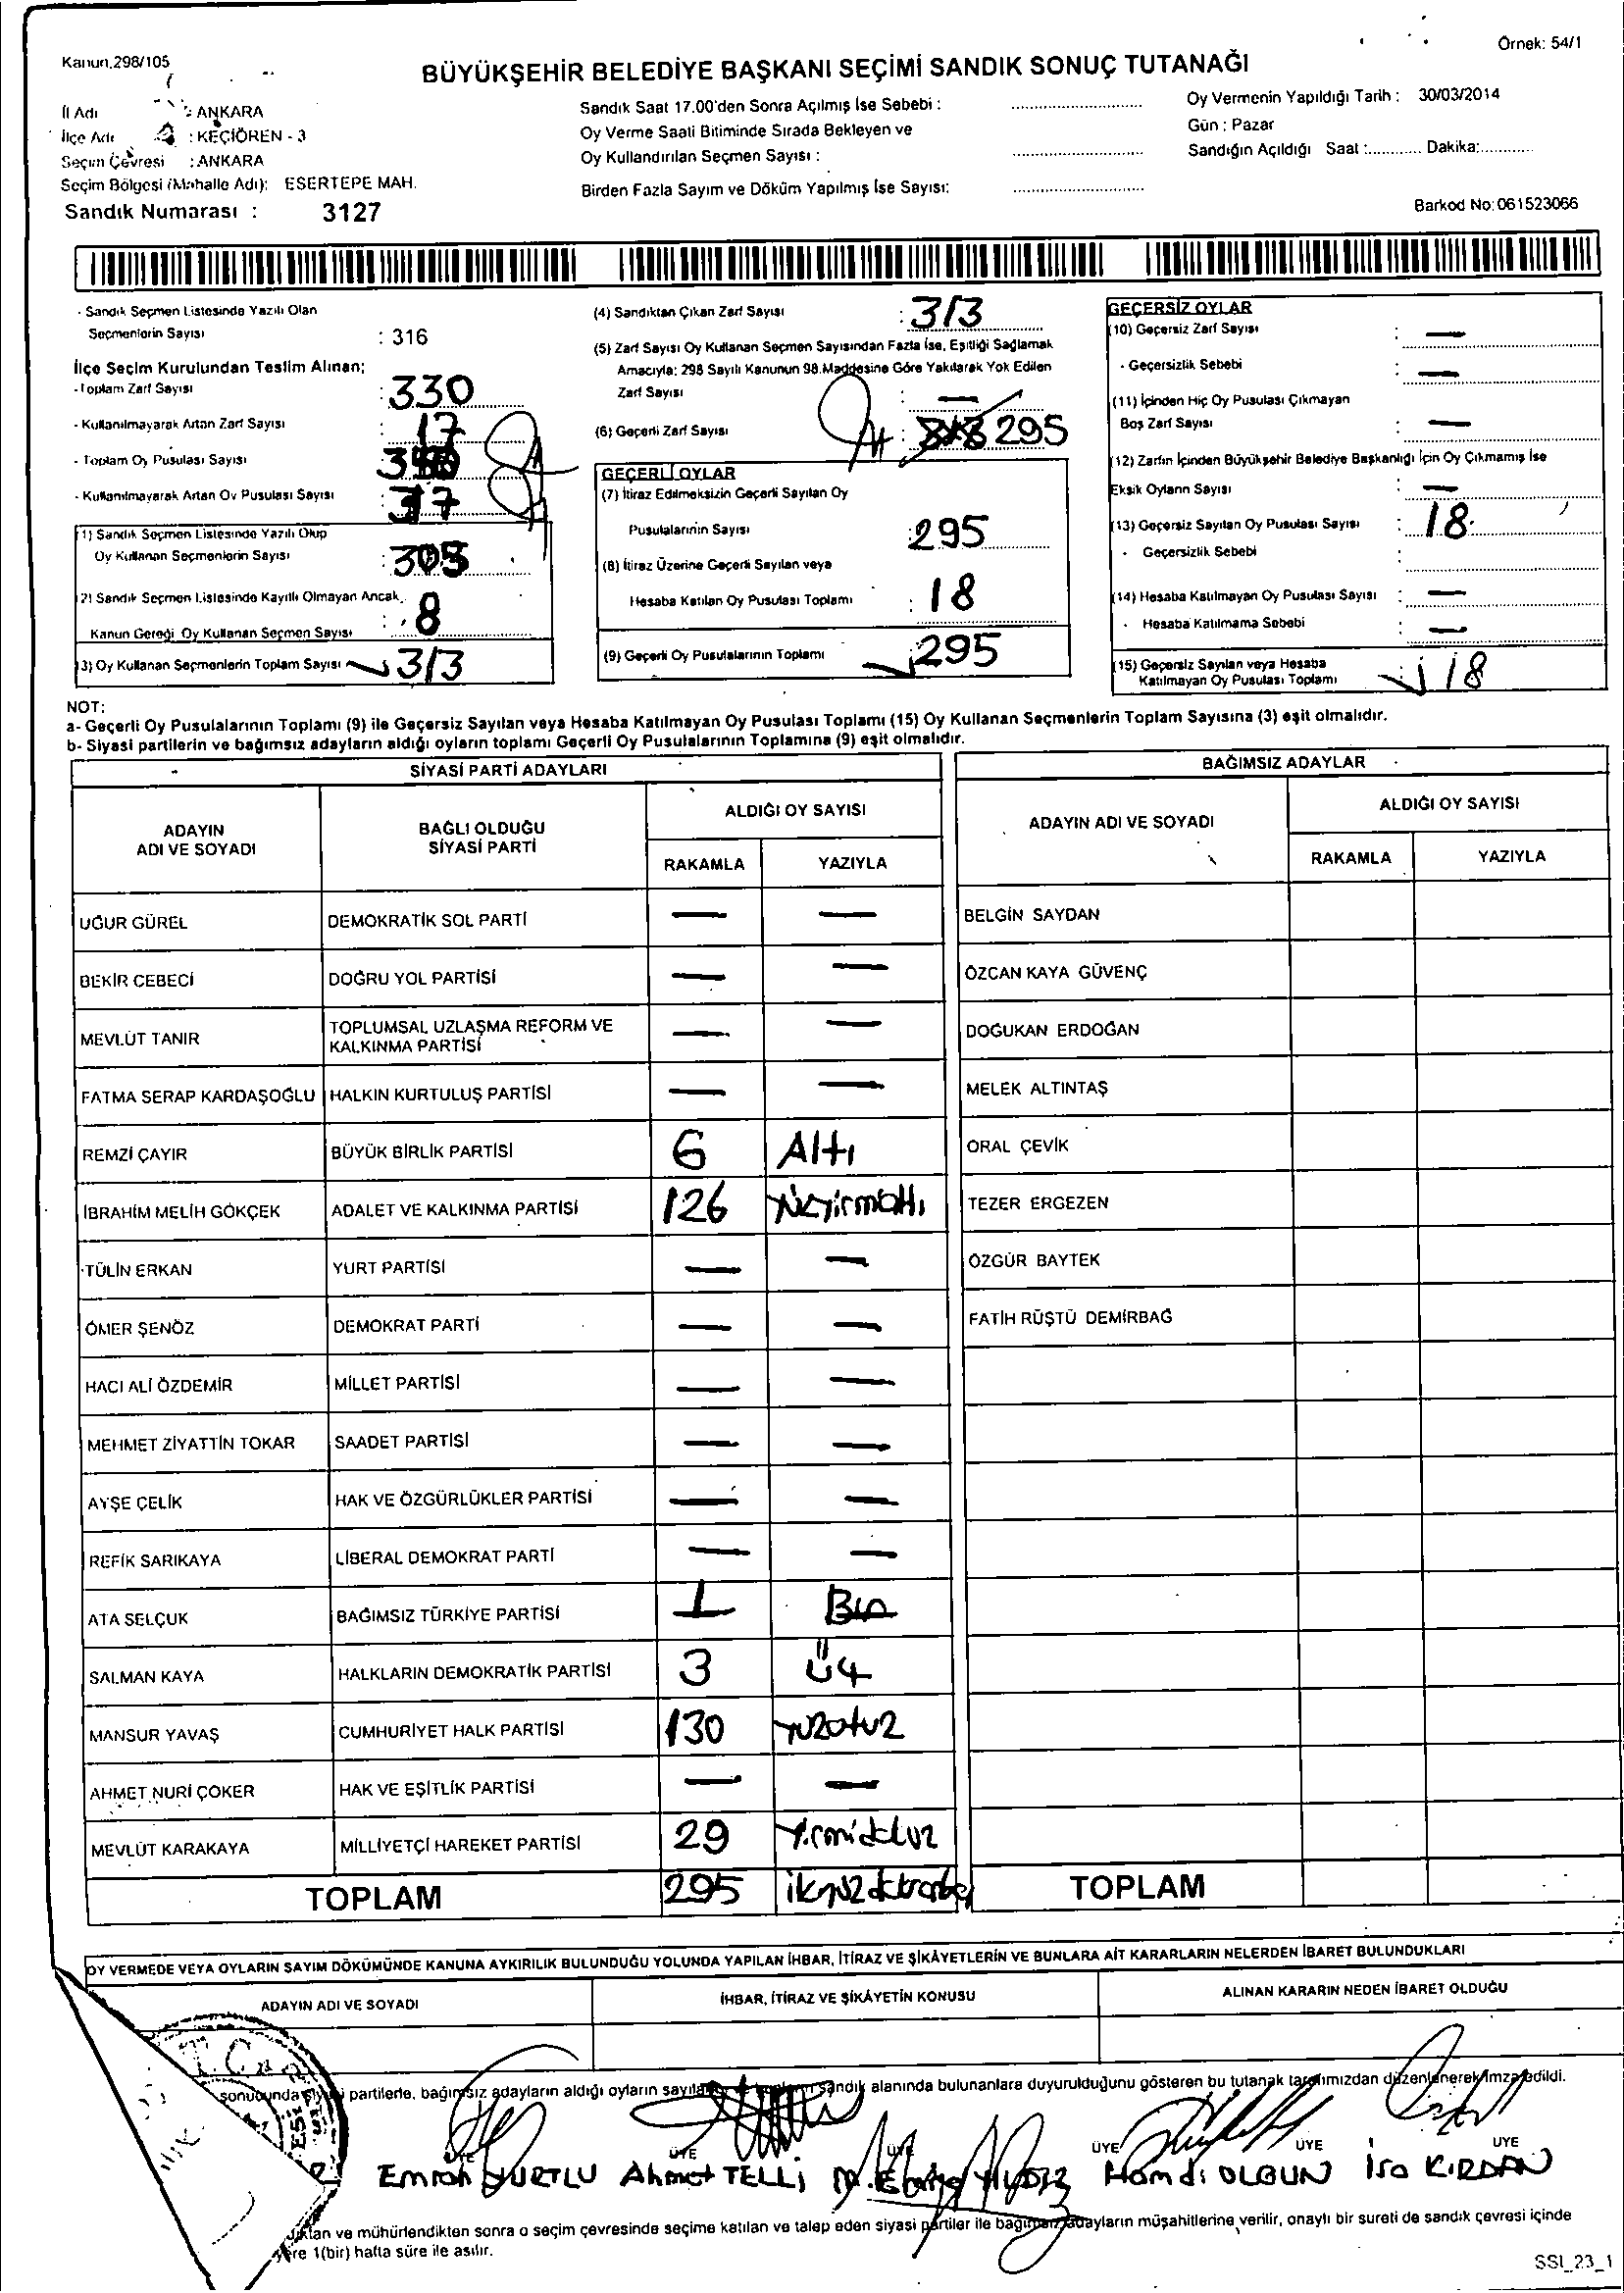 Örnek: 54/1
Kanun,298/105
BÜYÜKŞEHİR BELEDİYE BAŞKANI SEÇİMİ SANDIK SONUÇ TUTANAĞI
İl Adı : ANKARA
İlçe Adı : KEÇİÖREN - 3
Seçim Çevresi : ANKARA
Seçim Bölgesi (Mahalle Adı): ESERTEPE MAH.
Sandık Numarası : 3127
Sandık Saat 17.00'den Sonra Açılmış İse Sebebi :
Oy Verme Saati Bitiminde Sırada Bekleyen ve
Oy Kullandırılan Seçmen Sayısı :
Birden Fazla Sayım ve Döküm Yapılmış İse Sayısı:
Oy Vermenin Yapıldığı Tarih : 30/03/2014
Gün : Pazar
Sandığın Açıldığı Saat :............ Dakika:............
Barkod No:061523066
- Sandık Seçmen Listesinde Yazılı Olan
Seçmenlerin Sayısı : 316
İlçe Seçim Kurulundan Teslim Alınan;
- Toplam Zarf Sayısı : 330
- Kullanılmayarak Artan Zarf Sayısı : 17
- Toplam Oy Pusulası Sayısı
- Kullanılmayarak Artan Oy Pusulası Sayısı
(1) Sandık Seçmen Listesinde Yazılı Olup
Oy Kullanan Seçmenlerin Sayısı : 305
(2) Sandık Seçmen Listesinde Kayıtlı Olmayan Ancak
Kanun Gereği Oy Kullanan Seçmen Sayısı : 8
(3) Oy Kullanan Seçmenlerin Toplam Sayısı 313
(4) Sandıktan Çıkan Zarf Sayısı : 313
(5) Zarf Sayısı Oy Kullanan Seçmen Sayısından Fazla İse, Eşitliği Sağlamak
Amacıyla; 298 Sayılı Kanunun 98.Maddesine Göre Yakılarak Yok Edilen
Zarf Sayısı : —
(6) Geçerli Zarf Sayısı : 295
GEÇERLİ OYLAR
(7) İtiraz Edilmeksizin Geçerli Sayılan Oy
Pusulalarının Sayısı : 295
(8) İtiraz Üzerine Geçerli Sayılan veya
Hesaba Katılan Oy Pusulası Toplamı : 18
(9) Geçerli Oy Pusulalarının Toplamı : 295
GEÇERSİZ OYLAR
(10) Geçersiz Zarf Sayısı : —
- Geçersizlik Sebebi : —
(11) İçinden Hiç Oy Pusulası Çıkmayan
Boş Zarf Sayısı : —
(12) Zarfın İçinden Büyükşehir Belediye Başkanlığı İçin Oy Çıkmamış İse
Eksik Oyların Sayısı : —
(13) Geçersiz Sayılan Oy Pusulası Sayısı : 18
- Geçersizlik Sebebi :
(14) Hesaba Katılmayan Oy Pusulası Sayısı : —
- Hesaba Katılmama Sebebi : —
(15) Geçersiz Sayılan veya Hesaba
Katılmayan Oy Pusulası Toplamı : 18
NOT:
a- Geçerli Oy Pusulalarının Toplamı (9) ile Geçersiz Sayılan veya Hesaba Katılmayan Oy Pusulası Toplamı (15) Oy Kullanan Seçmenlerin Toplam Sayısına (3) eşit olmalıdır.
b- Siyasi partilerin ve bağımsız adayların aldığı oyların toplamı Geçerli Oy Pusulalarının Toplamına (9) eşit olmalıdır.
SİYASİ PARTİ ADAYLARI
ADAYIN ADI VE SOYADI BAĞLI OLDUĞU SİYASİ PARTİ ALDIĞI OY SAYISI
RAKAMLA YAZIYLA
UĞUR GÜREL DEMOKRATİK SOL PARTİ — —
BEKİR CEBECİ DOĞRU YOL PARTİSİ — —
MEVLÜT TANIR TOPLUMSAL UZLAŞMA REFORM VE KALKINMA PARTİSİ — —
FATMA SERAP KARDAŞOĞLU HALKIN KURTULUŞ PARTİSİ — —
REMZİ ÇAYIR BÜYÜK BİRLİK PARTİSİ 6 Altı
İBRAHİM MELİH GÖKÇEK ADALET VE KALKINMA PARTİSİ 126
TÜLİN ERKAN YURT PARTİSİ — —
ÖMER ŞENÖZ DEMOKRAT PARTİ — —
HACI ALİ ÖZDEMİR MİLLET PARTİSİ — —
MEHMET ZİYATTİN TOKAR SAADET PARTİSİ — —
AYŞE ÇELİK HAK VE ÖZGÜRLÜKLER PARTİSİ — —
REFİK SARIKAYA LİBERAL DEMOKRAT PARTİ — —
ATA SELÇUK BAĞIMSIZ TÜRKİYE PARTİSİ 1 Bir
SALMAN KAYA HALKLARIN DEMOKRATİK PARTİSİ 3 Üç
MANSUR YAVAŞ CUMHURİYET HALK PARTİSİ 130 yüzotuz
AHMET NURİ ÇOKER HAK VE EŞİTLİK PARTİSİ — —
MEVLÜT KARAKAYA MİLLİYETÇİ HAREKET PARTİSİ 29 Yirmidokuz
TOPLAM 295
BAĞIMSIZ ADAYLAR
ADAYIN ADI VE SOYADI ALDIĞI OY SAYISI
RAKAMLA YAZIYLA
BELGİN SAYDAN
ÖZCAN KAYA GÜVENÇ
DOĞUKAN ERDOĞAN
MELEK ALTINTAŞ
ORAL ÇEVİK
TEZER ERGEZEN
ÖZGÜR BAYTEK
FATİH RÜŞTÜ DEMİRBAĞ
TOPLAM
OY VERMEDE VEYA OYLARIN SAYIM DÖKÜMÜNDE KANUNA AYKIRILIK BULUNDUĞU YOLUNDA YAPILAN İHBAR, İTİRAZ VE ŞİKÂYETLERİN VE BUNLARA AİT KARARLARIN NELERDEN İBARET BULUNDUKLARI
ADAYIN ADI VE SOYADI İHBAR, İTİRAZ VE ŞİKÂYETİN KONUSU ALINAN KARARIN NEDEN İBARET OLDUĞU
T.C.
sonucunda partilerle, bağımsız adayların aldığı oyların sandık alanında bulunanlara duyurulduğunu gösteren bu tutanak tarafımızdan düzenlenerek imza edildi.
ÜYE ÜYE ÜYE ÜYE ÜYE ÜYE
Emrah YURTLU Ahmet TELLİ YILDIZ Hamdi OLGUN İsa KIRDAN
ve mühürlendikten sonra o seçim çevresinde seçime katılan ve talep eden siyasi partiler ile bağımsız adayların müşahitlerine verilir, onaylı bir sureti de sandık çevresi içinde
1(bir) hafta süre ile asılır.
SSI_23_1